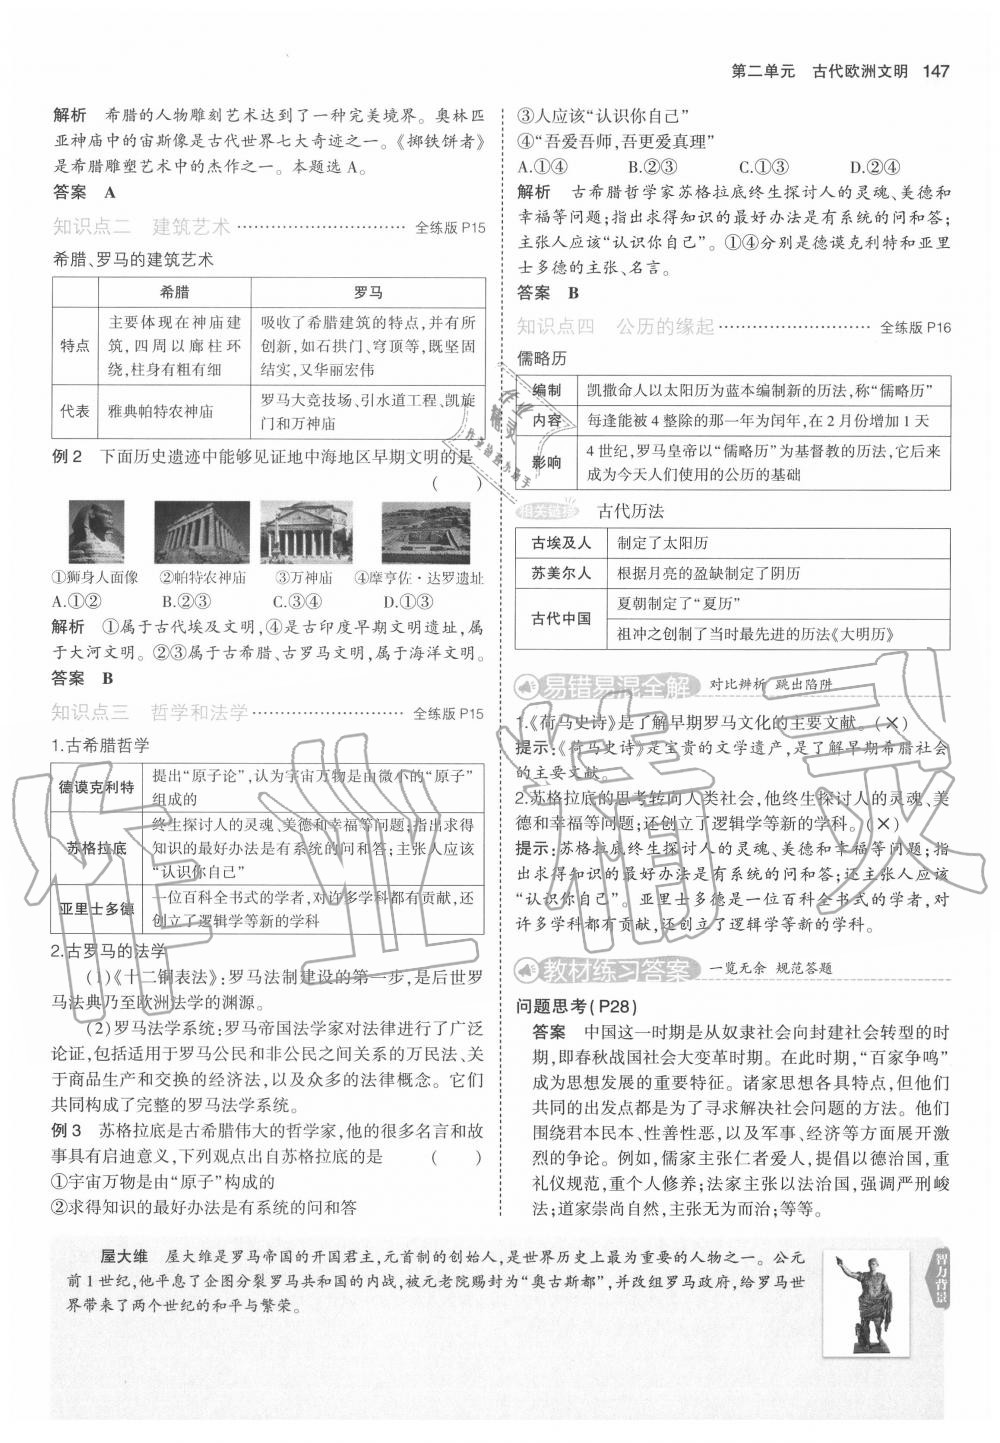 第二单元　古代欧洲文明　147
解析　希腊的人物雕刻艺术达到了一种完美境界。奥林匹
亚神庙中的宙斯像是古代世界七大奇迹之一。《掷铁饼者》
是希腊雕塑艺术中的杰作之一。本题选 A。
答案　A
知识点二　建筑艺术 ………………………… 全练版 P15
希腊、罗马的建筑艺术
希腊　罗马
特点
主要体现在神庙建
筑,四周以廊柱环
绕,柱身有粗有细
吸收了希腊建筑的特点,并有所
创新,如石拱门、穹顶等,既坚固
结实,又华丽宏伟
代表　雅典帕特农神庙
罗马大竞技场、引水道工程、凯旋
门和万神庙
例 2　下面历史遗迹中能够见证地中海地区早期文明的是
(　　)
①狮身人面像　②帕特农神庙　③万神庙　④摩亨佐·达罗遗址
A.①②　B.②③　C.③④　D.①③
解析　①属于古代埃及文明,④是古印度早期文明遗址,属
于大河文明。②③属于古希腊、古罗马文明,属于海洋文明。
答案　B
知识点三　哲学和法学 ……………………… 全练版 P15
1.古希腊哲学
德谟克利特
提出“原子论”,认为宇宙万物是由微小的“原子”
组成的
苏格拉底
终生探讨人的灵魂、美德和幸福等问题;指出求得
知识的最好办法是有系统的问和答;主张人应该
“认识你自己”
亚里士多德
一位百科全书式的学者,对许多学科都有贡献,还
创立了逻辑学等新的学科
2.古罗马的法学
(1)《十二铜表法》:罗马法制建设的第一步,是后世罗
马法典乃至欧洲法学的渊源。
(2)罗马法学系统:罗马帝国法学家对法律进行了广泛
论证,包括适用于罗马公民和非公民之间关系的万民法、关
于商品生产和交换的经济法,以及众多的法律概念。它们
共同构成了完整的罗马法学系统。
例 3　苏格拉底是古希腊伟大的哲学家,他的很多名言和故
事具有启迪意义,下列观点出自苏格拉底的是　(　　)
①宇宙万物是由“原子”构成的
②求得知识的最好办法是有系统的问和答
③人应该“认识你自己”
④“吾爱吾师,吾更爱真理”
A.①④　B.②③　C.①③　D.②④
解析　古希腊哲学家苏格拉底终生探讨人的灵魂、美德和
幸福等问题;指出求得知识的最好办法是有系统的问和答;
主张人应该“认识你自己”。①④分别是德谟克利特和亚里
士多德的主张、名言。
答案　B
知识点四　公历的缘起 ……………………… 全练版 P16
儒略历
编制　凯撒命人以太阳历为蓝本编制新的历法,称“儒略历”
内容　每逢能被 4 整除的那一年为闰年,在 2 月份增加 1 天
影响
4 世纪,罗马皇帝以“儒略历”为基督教的历法,它后来
成为今天人们使用的公历的基础
相关链接　古代历法
古埃及人　制定了太阳历
苏美尔人　根据月亮的盈缺制定了阴历
古代中国
夏朝制定了“夏历”
祖冲之创制了当时最先进的历法《大明历》
易错易混全解　对比辨析　跳出陷阱
1.《荷马史诗》是了解早期罗马文化的主要文献。(×)
提示:《荷马史诗》是宝贵的文学遗产,是了解早期希腊社会
的主要文献。
2.苏格拉底的思考转向人类社会,他终生探讨人的灵魂、美
德和幸福等问题;还创立了逻辑学等新的学科。(×)
提示:苏格拉底终生探讨人的灵魂、美德和幸福等问题;指
出求得知识的最好办法是有系统的问和答;还主张人应该
“认识你自己”。亚里士多德是一位百科全书式的学者,对
许多学科都有贡献,还创立了逻辑学等新的学科。
教材练习答案　一览无余　规范答题
问题思考(P28)
答案　中国这一时期是从奴隶社会向封建社会转型的时
期,即春秋战国社会大变革时期。在此时期,“百家争鸣”
成为思想发展的重要特征。诸家思想各具特点,但他们
共同的出发点都是为了寻求解决社会问题的方法。他们
围绕君本民本、性善性恶,以及军事、经济等方面展开激
烈的争论。例如,儒家主张仁者爱人,提倡以德治国,重
礼仪规范,重个人修养;法家主张以法治国,强调严刑峻
法;道家崇尚自然,主张无为而治;等等。
屋大维　屋大维是罗马帝国的开国君主,元首制的创始人,是世界历史上最为重要的人物之一。公元
前 1 世纪,他平息了企图分裂罗马共和国的内战,被元老院赐封为“奥古斯都”,并改组罗马政府,给罗马世
界带来了两个世纪的和平与繁荣。
智力背景
作业精灵